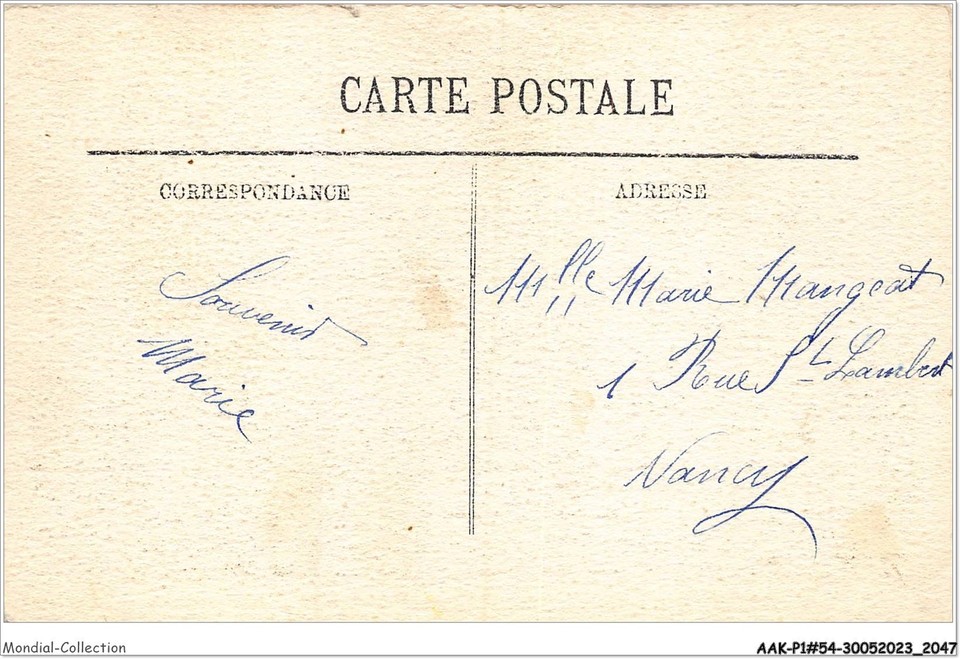 CARTE POSTALE
CORRESPONDANCE
ADRESSE
Souvenir
Marie
Mlle Marie Mangeat
1 Rue St Lambert
Nancy
Mondial-Collection
AAK-P1#54-30052023_2047